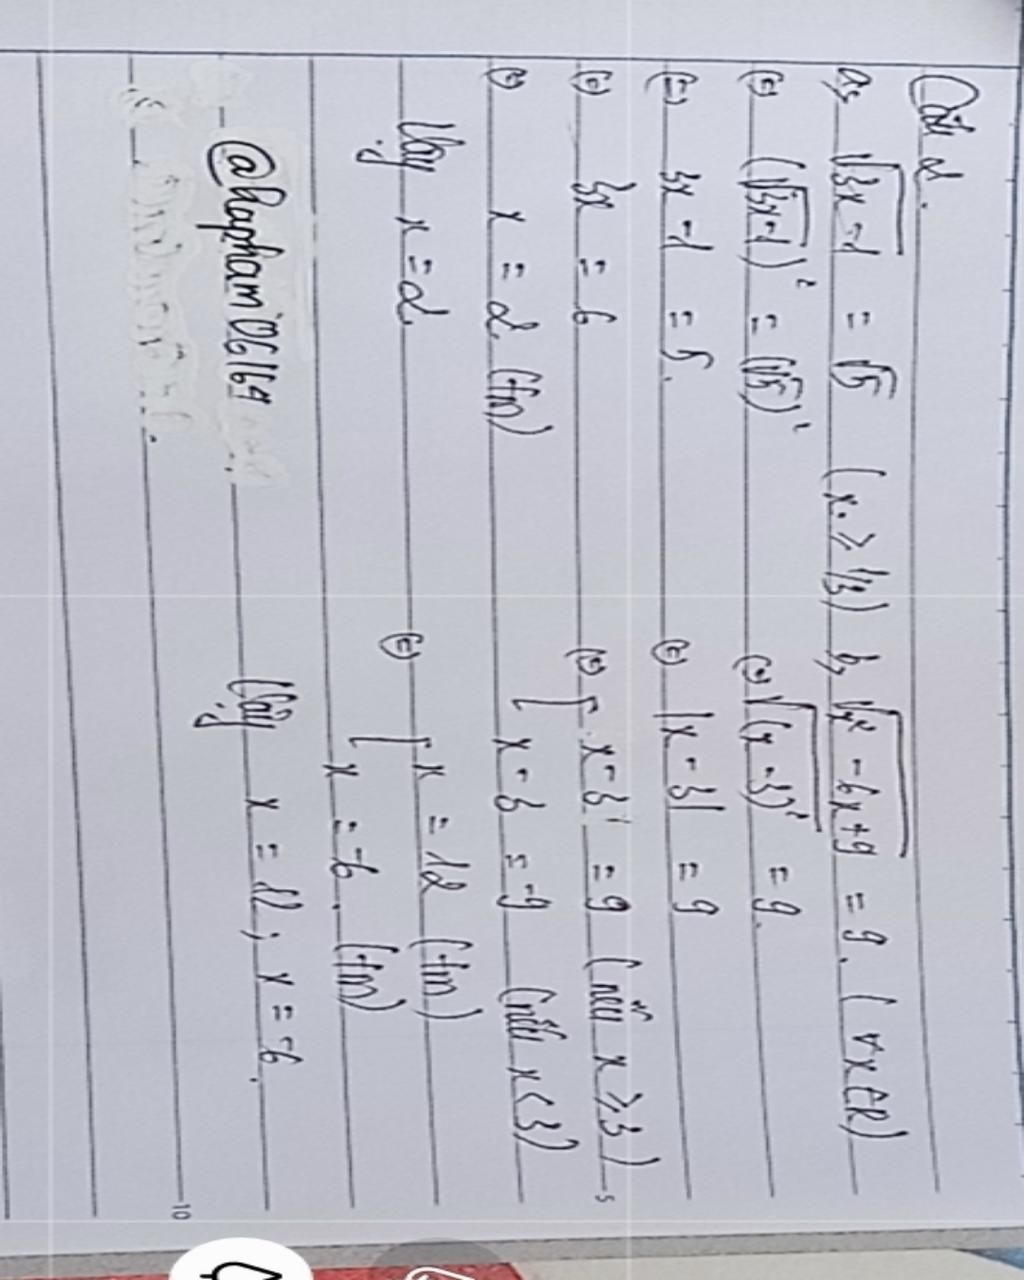 Câu 2.
a, √3x-1 = √5 (x ≥ 1/3)
⇔ (√3x-1)² = (√5)²
⇔ 3x - 1 = 5.
⇔ 3x = 6
⇔ x = 2 (tm)
Vậy x = 2
b, √x² - 6x + 9 = 9. (∀x∈R)
⇔ √(x-3)² = 9.
⇔ |x - 3| = 9
⇔ [ x - 3 = 9 (nếu x ≥ 3)
x - 3 = -9 (nếu x < 3)
⇔ [ x = 12 (tm)
x = -6. (tm)
Vậy x = 12; x = -6.
@hapham06169
5
10